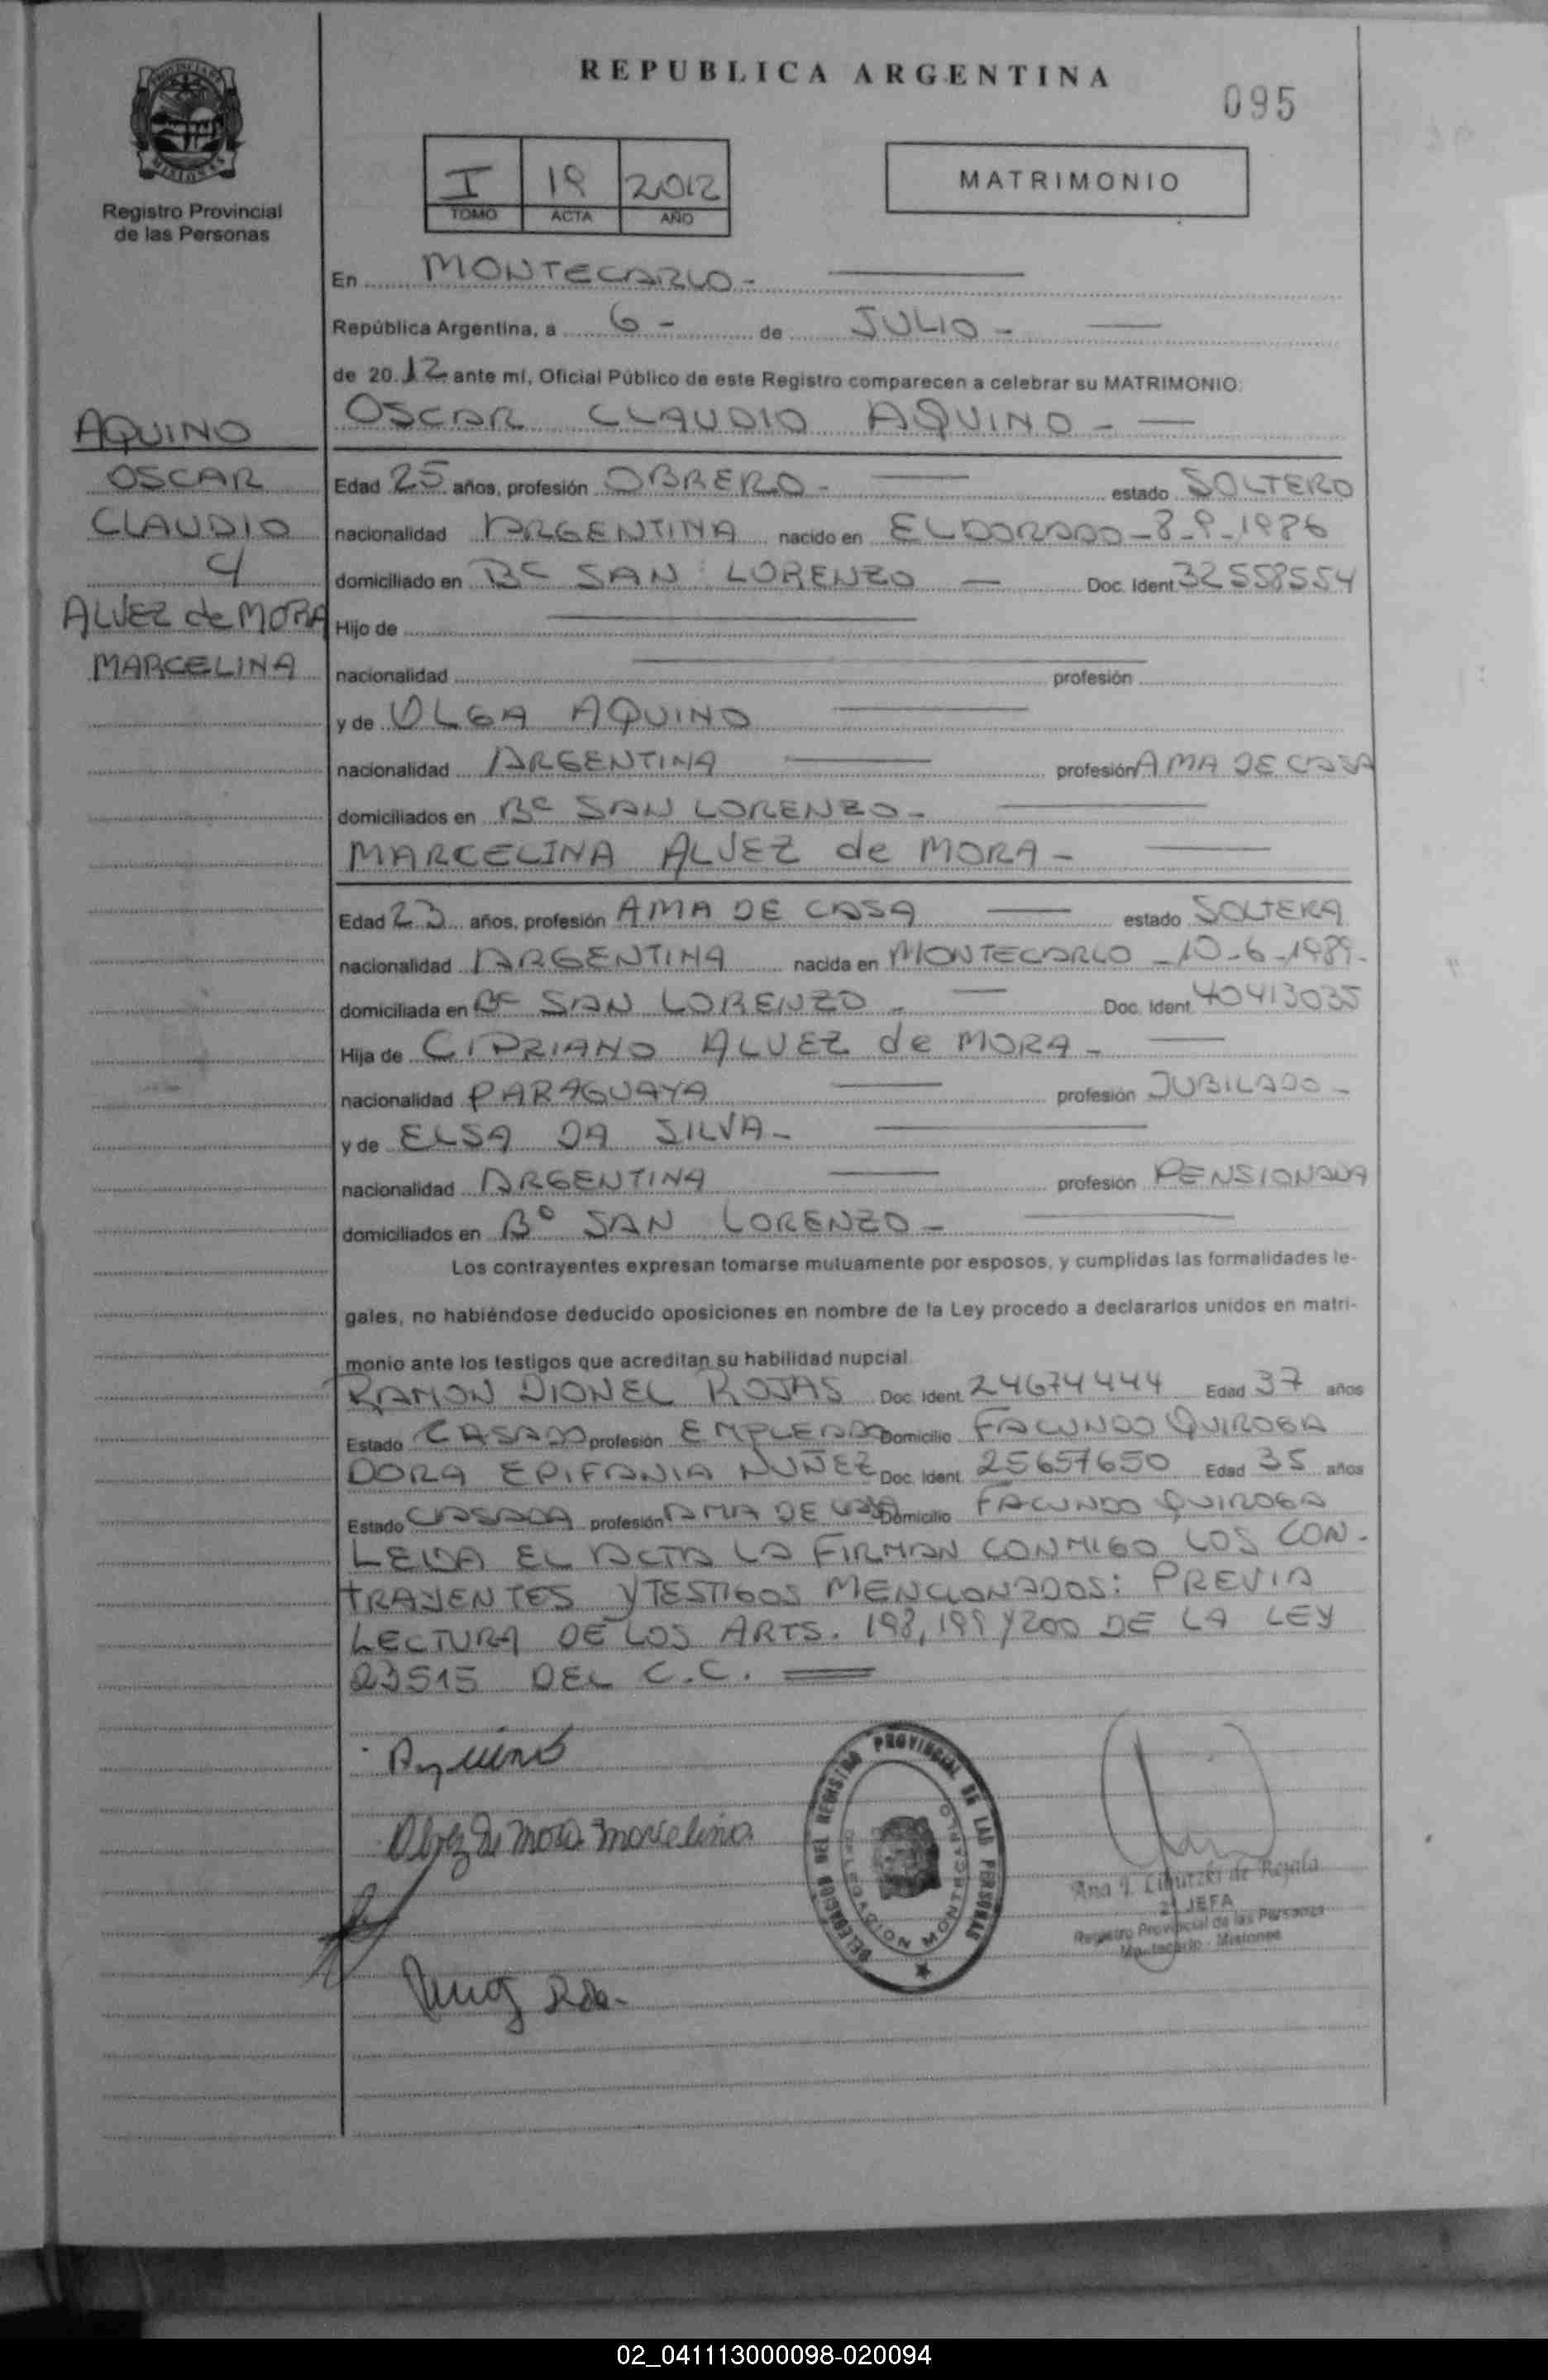 REPUBLICA ARGENTINA
095
Registro Provincial
de las Personas
I 19 2012
TOMO ACTA AÑO
MATRIMONIO
En MONTECARLO -
República Argentina, a 6 - de JULIO -
de 2012 ante mí, Oficial Público de este Registro comparecen a celebrar su MATRIMONIO:
OSCAR CLAUDIO AQUINO -
AQUINO
OSCAR
CLAUDIO
Y
ALVEZ de MORA
MARCELINA
Edad 25 años, profesión OBRERO - estado SOLTERO
nacionalidad ARGENTINA nacido en ELDORADO - 8-9-1986
domiciliado en Bº SAN LORENZO - Doc. Ident. 32558554
Hijo de
nacionalidad profesión
y de OLGA AQUINO
nacionalidad ARGENTINA profesión AMA DE CASA
domiciliados en Bº SAN LORENZO -
MARCELINA ALVEZ de MORA -
Edad 23 años, profesión AMA DE CASA estado SOLTERA
nacionalidad ARGENTINA nacida en MONTECARLO - 10-6-1989-
domiciliada en Bº SAN LORENZO - Doc. Ident. 40413035
Hija de CIPRIANO ALVEZ de MORA -
nacionalidad PARAGUAYA profesión JUBILADO -
y de ELSA DA SILVA -
nacionalidad ARGENTINA profesión PENSIONADA
domiciliados en Bº SAN LORENZO -
Los contrayentes expresan tomarse mutuamente por esposos, y cumplidas las formalidades le-
gales, no habiéndose deducido oposiciones en nombre de la Ley procedo a declararlos unidos en matri-
monio ante los testigos que acreditan su habilidad nupcial.
RAMON DIONEL ROJAS Doc. Ident. 24674444 Edad 37 años
Estado CASADO profesión EMPLEADO Domicilio FACUNDO QUIROGA
DORA EPIFANIA NUÑEZ Doc. Ident. 25657650 Edad 35 años
Estado CASADA profesión AMA DE CASA Domicilio FACUNDO QUIROGA
LEIDA EL ACTA LA FIRMAN CONMIGO LOS CON-
TRAYENTES Y TESTIGOS MENCIONADOS: PREVIA
LECTURA DE LOS ARTS. 198, 199 Y 200 DE LA LEY
23515 DEL C.C.
Aquino
Alvez de Mora Marcelina
DELEGACION DEL REGISTRO PROVINCIAL DE LAS PERSONAS
DELEGACION MONTECARLO
2ª JEFA
Registro Provincial de las Personas
Montecarlo - Misiones
02_041113000098-020094